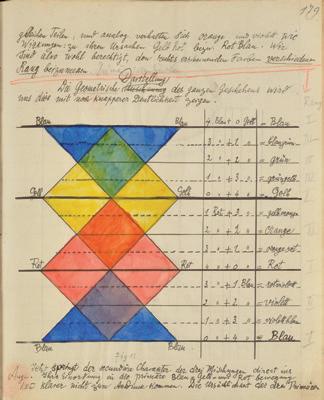 179
gleichen Teilen, und analog verhalten sich orange und violett wie
Wirkungen: zu ihren Ursachen Gelb Rot bezw. Rot Blau. Wir
sind also wohl berechtigt, den rechts erscheinenden Farben verschiedenen
Rang beizumessen.
Darstellung
Die Geometrische des ganzen Geschehens wird
uns dies mit noch knapperer Deutlichkeit zeigen.
Blau Blau 4 Blau + 0 Gelb = Blau
3 " + 1 " = blaugrün
2 " + 2 " = grün
1 " + 3 " = grüngelb
Gelb Gelb 0 " + 4 " = Gelb
1 Rot + 3 " = gelborange
2 " + 2 " = orange
3 " + 1 " = orangerot
Rot Rot 4 " + 0 " = Rot
3 " + 1 Blau = rotviolett
2 " + 2 " = violett
1 " + 3 " = violettblau
Blau Blau 0 " + 4 " = Blau
Jetzt springt der secundäre Charakter der drei Mischungen direct ins
Auge. Ihre Einordnung in die primäre Blau Gelb und Rot bewegung
klarer nicht zum Ausdruck kommen. Die Urgewalt der drei Primären